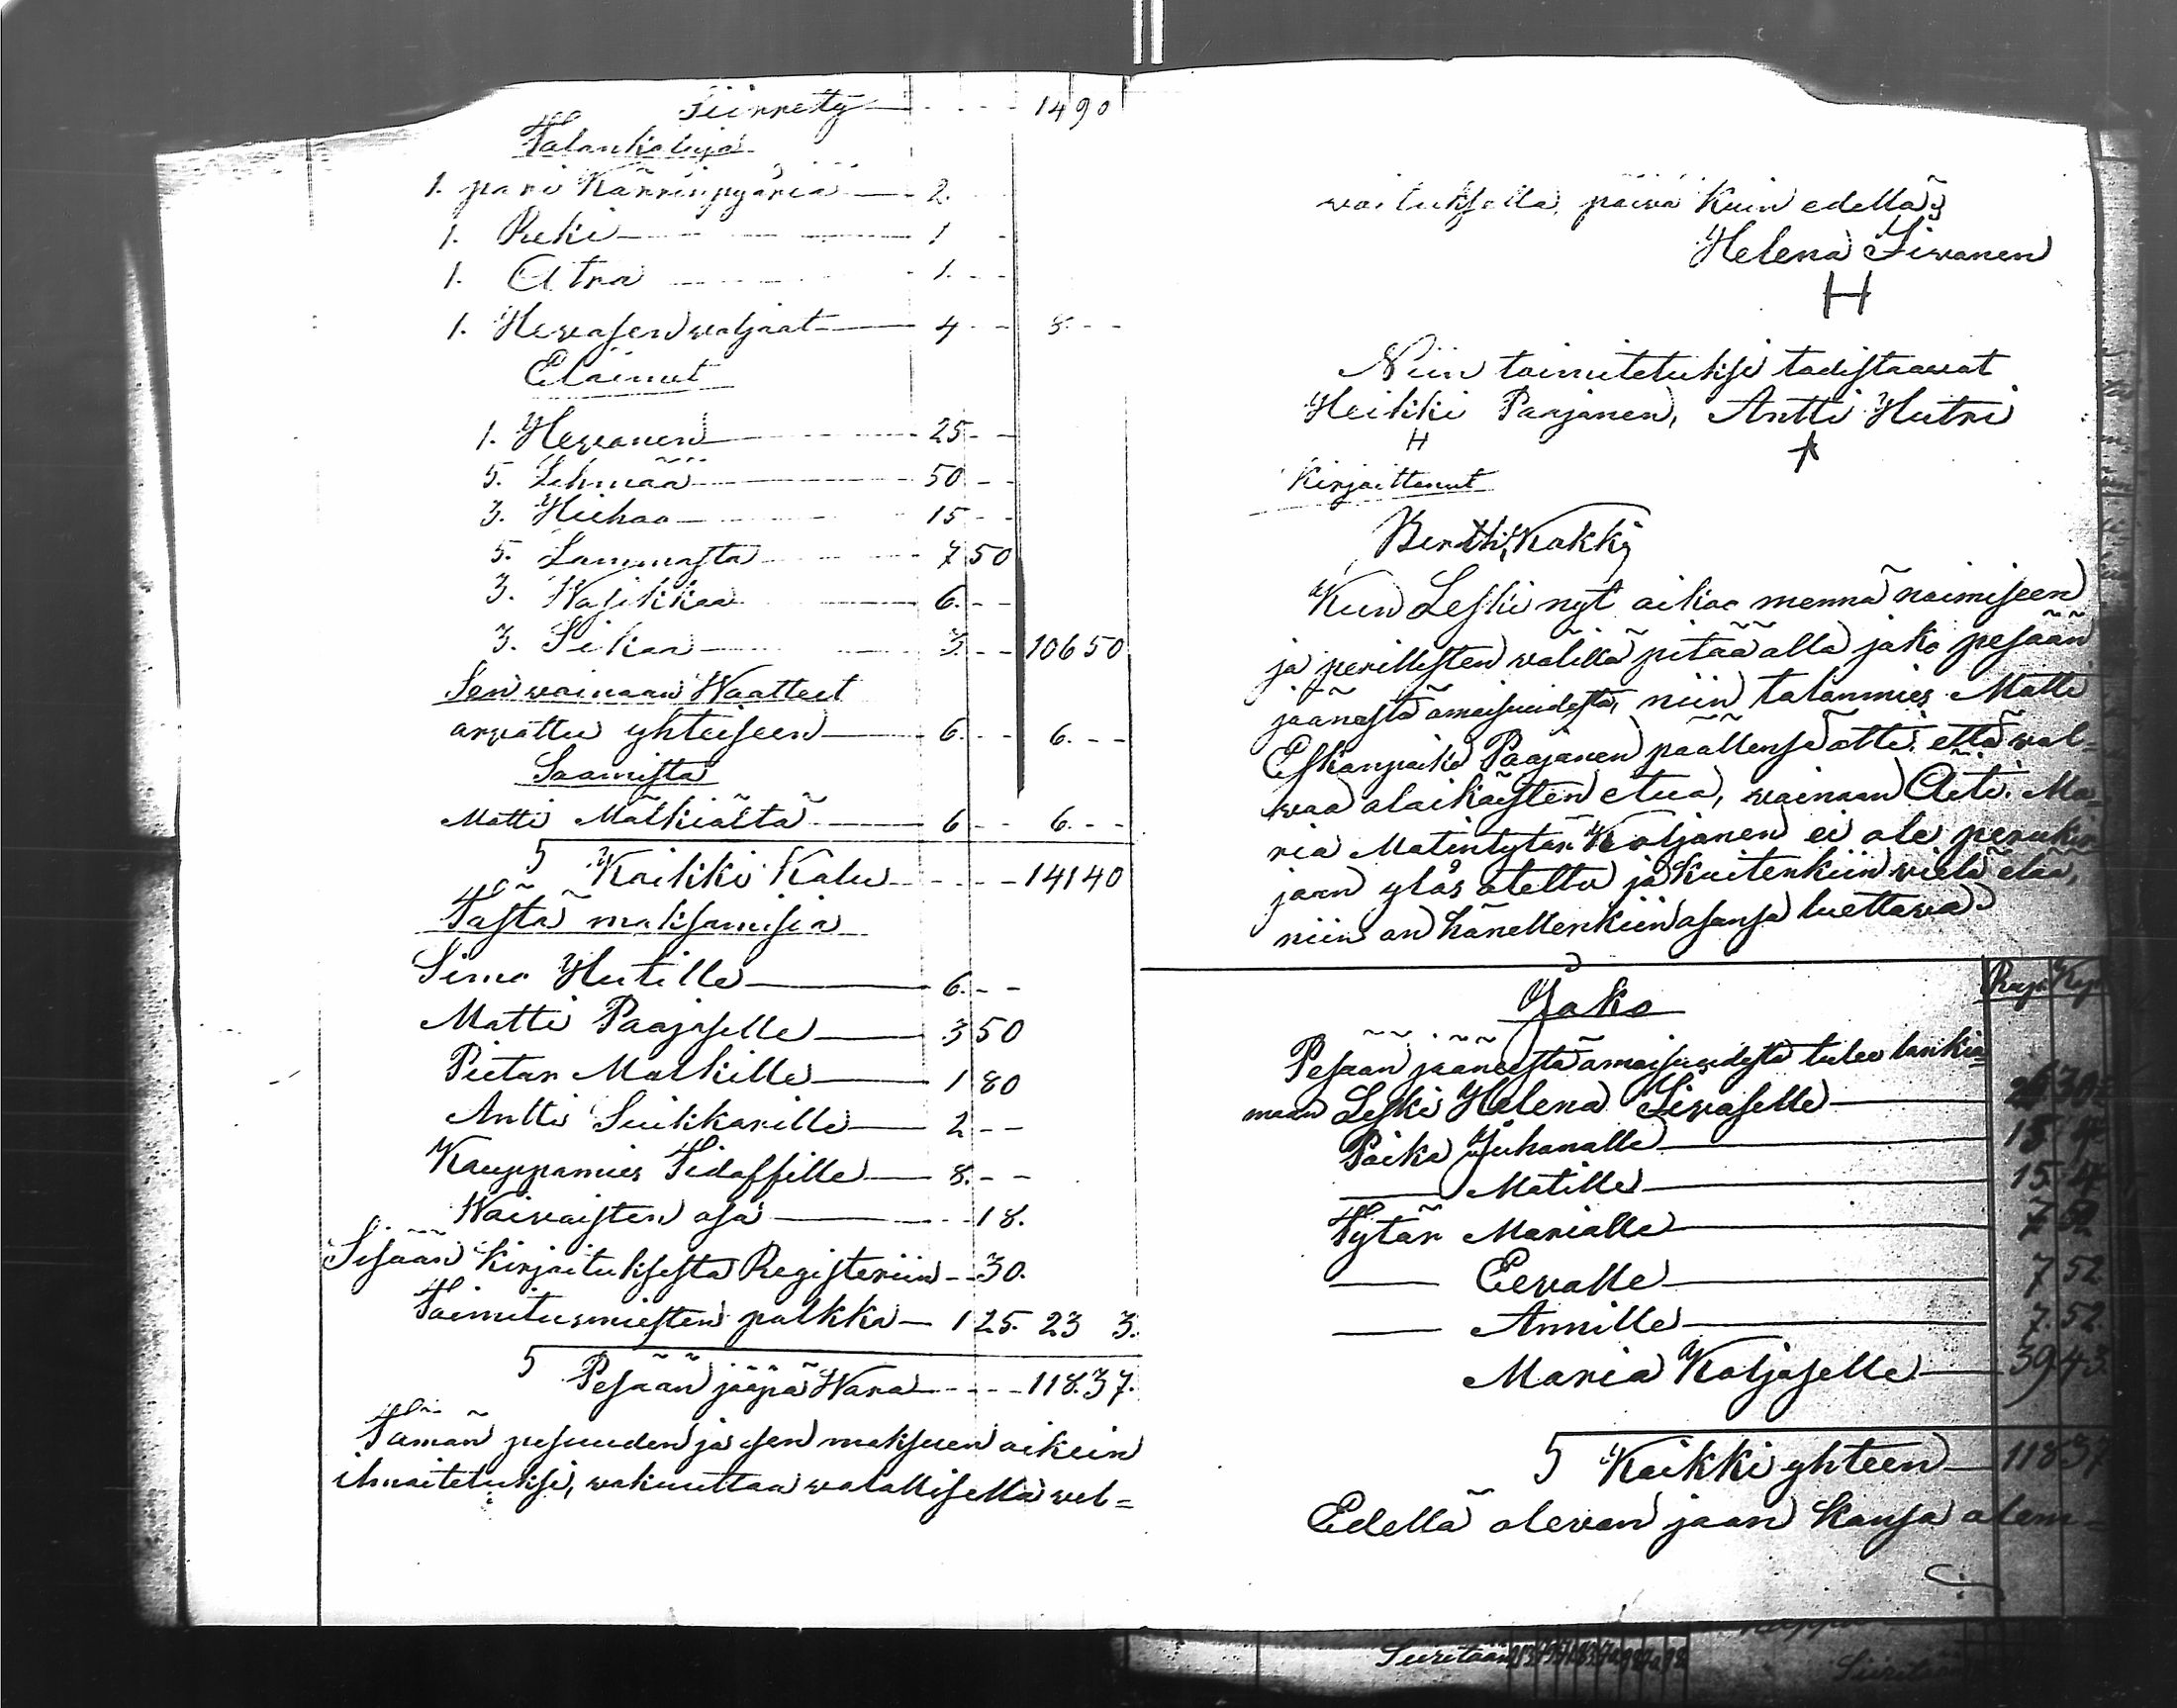 Siirretty - - - - 14 90
Talonkaluja
1. pari Kärrinpyöriä — 2.
1. Reki — 1 -
1. Atra — 1. - -
1. Hewosen waljaat — 4 - - 8. - -
Eläimet
1. Hewonen — 25 - -
5. Lehmää — 50 - -
3. Hiehoa — 15 - -
5. Lammasta — 7 50
3. Wasikkaa — 6. - -
3. Sikaa — 3. - - 106 50
Sen wainaan Waatteet
arwattu yhteiseen — 6. - - 6. - -
Saamista
Matti Mälkiältä — 6 - - 6. - -
Kaikki Kalu - - - - 141 40
Tästä maksamisia
Simo Hutille — 6. - -
Matti Paajaselle — 3 50
Pietar Malkille — 1 80
Antti Suikkarille — 2 - -
Kauppamies Sidoffille — 8. - -
Waiwaisten osa — - - 18.
Sisään kirjoituksesta Registeriin - - 30.
Toimitusmiesten palkka — 1 25. 23 3.
Pesään jääpä Wara - - - - 118. 37.
Tämän pesuuden ja sen maksuen oikein
ilmoitetuksi, wakuuttaa walallisella wel=
woituksella, päiwä kuin edellä;
Helena Siwanen
H
Niin toimitetuksi todistaawat
Heikki Paajanen, Antti Hutri
H
Kirjoittanut
Bertti Kakki
Kun Leski nyt aikoo mennä naimiseen
ja perillisten wälillä pitää olla jako pesään
jäänestä omaisuudesta, niin talonmies Matti
Eskonpoika Paajanen päällensä otti että wal=
woa alaikäisten etua, wainaan Äiti Ma=
ria Matintytär Koljonen ei ole perukir
jaan ylös otettu ja kuitenkiin wielä elää,
niin on hänellenkiin osansa luettawa.
Rup. Kop.
Jako
Pesään jääneestä omaisuudesta tulee lankia=
maan Leski Helena Siwaselle — 26 30
Poika Juhanalle — 15 4
— Matille — 15. 4
Tytär Marialle — 7 52
— Eewalle — 7 52
— Annille — 7. 52.
Maria Koljoselle — 39 43.
Kaikki yhteen — 118 37
Edellä olewan jaan kansa olem=
Siiretään